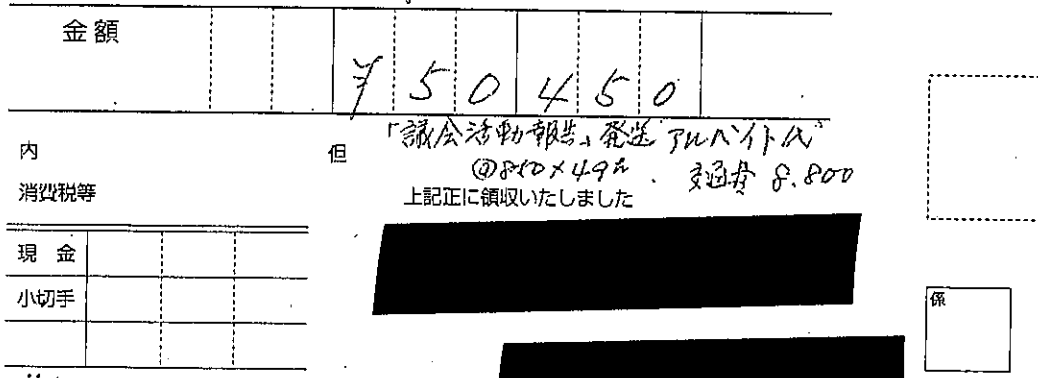 金額
¥50450
「議会活動報告」発送 アルバイト代
内
但
@850×49h . 交通費 8.800
消費税等
上記正に領収いたしました
現 金
小切手
係